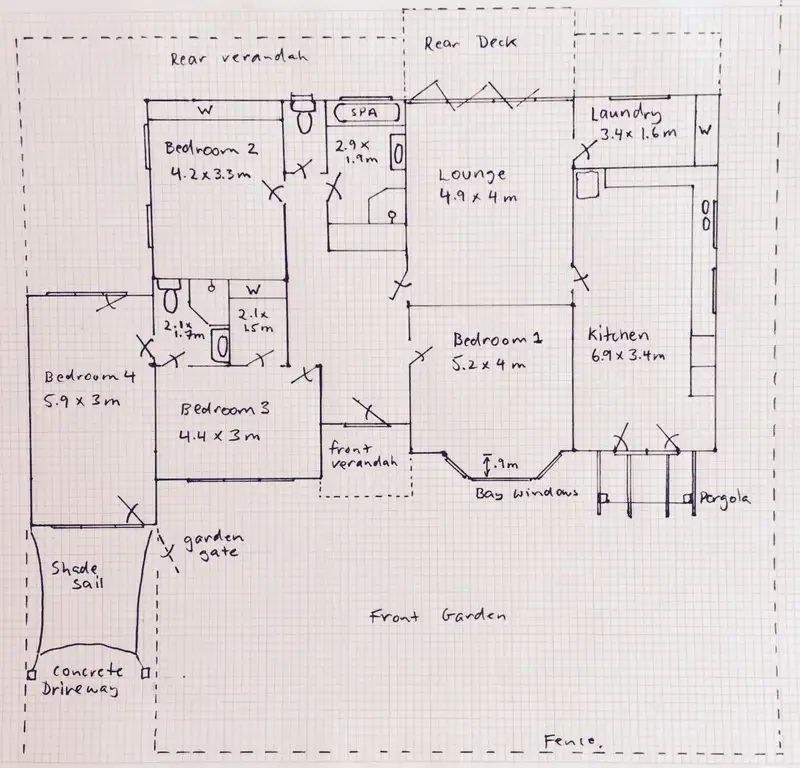 Rear verandah
Rear Deck
W
SPA
Laundry
3.4 x 1.6m
W
Bedroom 2
4.2 x 3.3m
2.9 x
1.9m
Lounge
4.9 x 4 m
W
2.1x
1.7m
2.1x
1.5m
Bedroom 1
5.2 x 4 m
Kitchen
6.9 x 3.4m
Bedroom 4
5.9 x 3m
Bedroom 3
4.4 x 3m
front
verandah
.9m
Bay windows
Pergola
garden
gate
Shade
Sail
Front Garden
Concrete
Driveway
Fence.